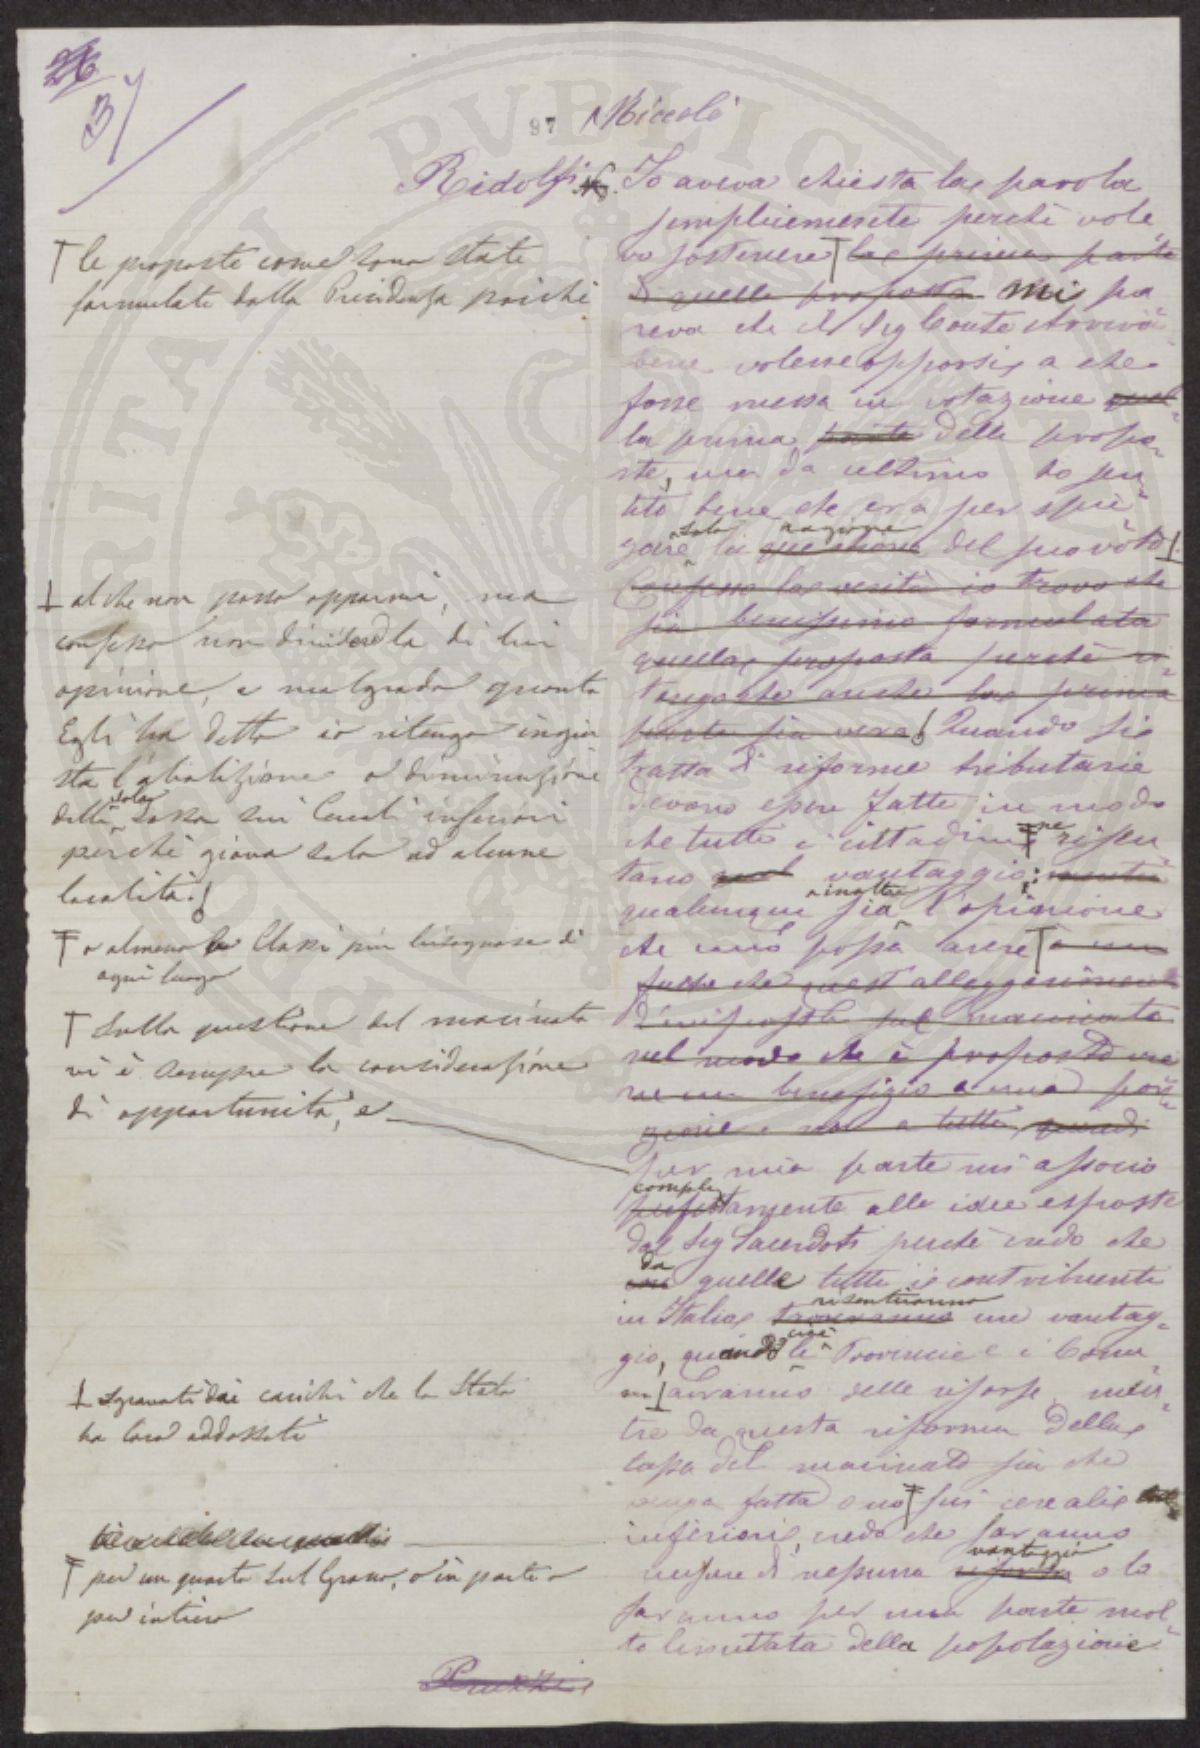 26
3
97 Niccolò
Ridolfi N. Io aveva chiesta la parola
semplicemente perché vole
vo sostenere la prima parte
di quella proposta mi pa
reva che il Sig Conte Arriva
bene volesse opporsi a che
fosse messa in votazione quel
la prima parte delle propo
ste, ma da ultimo ho sen
tito bene che era per spie
gare la questione del suo voto
sola ragione
Confesso la verità io trovo che
sia benissimo formulata
quella proposta perché ri
tengo che anche la prima
parte sia vera Quando si
tratta di riforme tributarie
devono essere fatte in modo
che tutti i cittadini ne risen
tano un vantaggio:
qualunque sia l'opinione
inoltre
che uno possa avere
che quest'alleggerimento
d'imposta sul macinato
nel modo che è proposto vie
ne un benefizio a una por
zione e non a tutti, quindi
per mia parte mi associo
completamente alle idee esposte
dal Sig Sacerdoti perché credo che
da quelle tutti i contribuenti
in Italia troveranno un vantag
risentiranno
gio, quando le Provincie e i Comu
cioè
ni avranno delle risorse, men
tre da questa riforma della
tassa del macinato sia che
venga fatta o no sui cereali
inferiori, credo che saranno
risorse di nessuna risorsa o lo
vantaggio
saranno per una parte mol
to limitata della popolazione
le proposte come sono state
formulate dalla Presidenza poiché
al che non posso oppormi, ma
confesso non dividere la di lui
opinione, e malgrado quanto
Egli ha detto io ritengo ingiu
sta l'abolizione o diminuzione
della sola tassa sui Cereali inferiori
perché giova solo ad alcune
località.
o almeno le Classi più bisognose di
ogni luogo
Sulla questione del macinato
vi è sempre la considerazione
di opportunità, e
sgravati dai carichi che lo Stato
ha loro addossati
per un quarto sul Grano, o in parte o
per intiero
Peruzzi